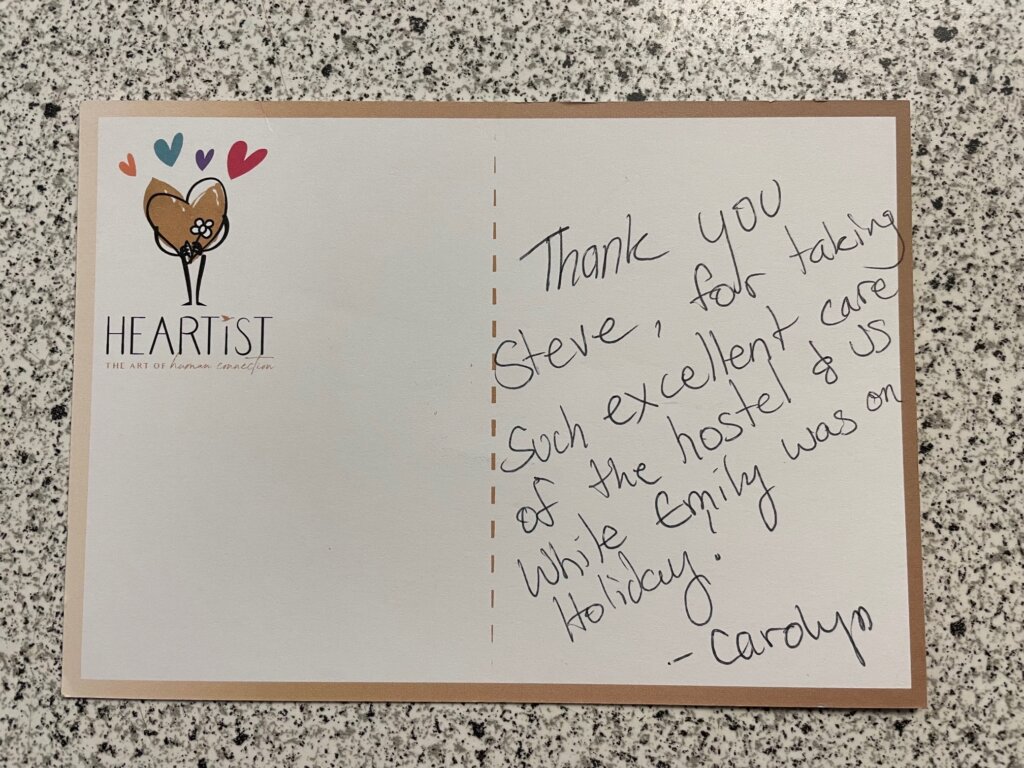 HEARTiST
THE ART OF human connection
Thank you
Steve, for taking
such excellent care
of the hostel & us
while Emily was on
Holiday.
- Carolyn